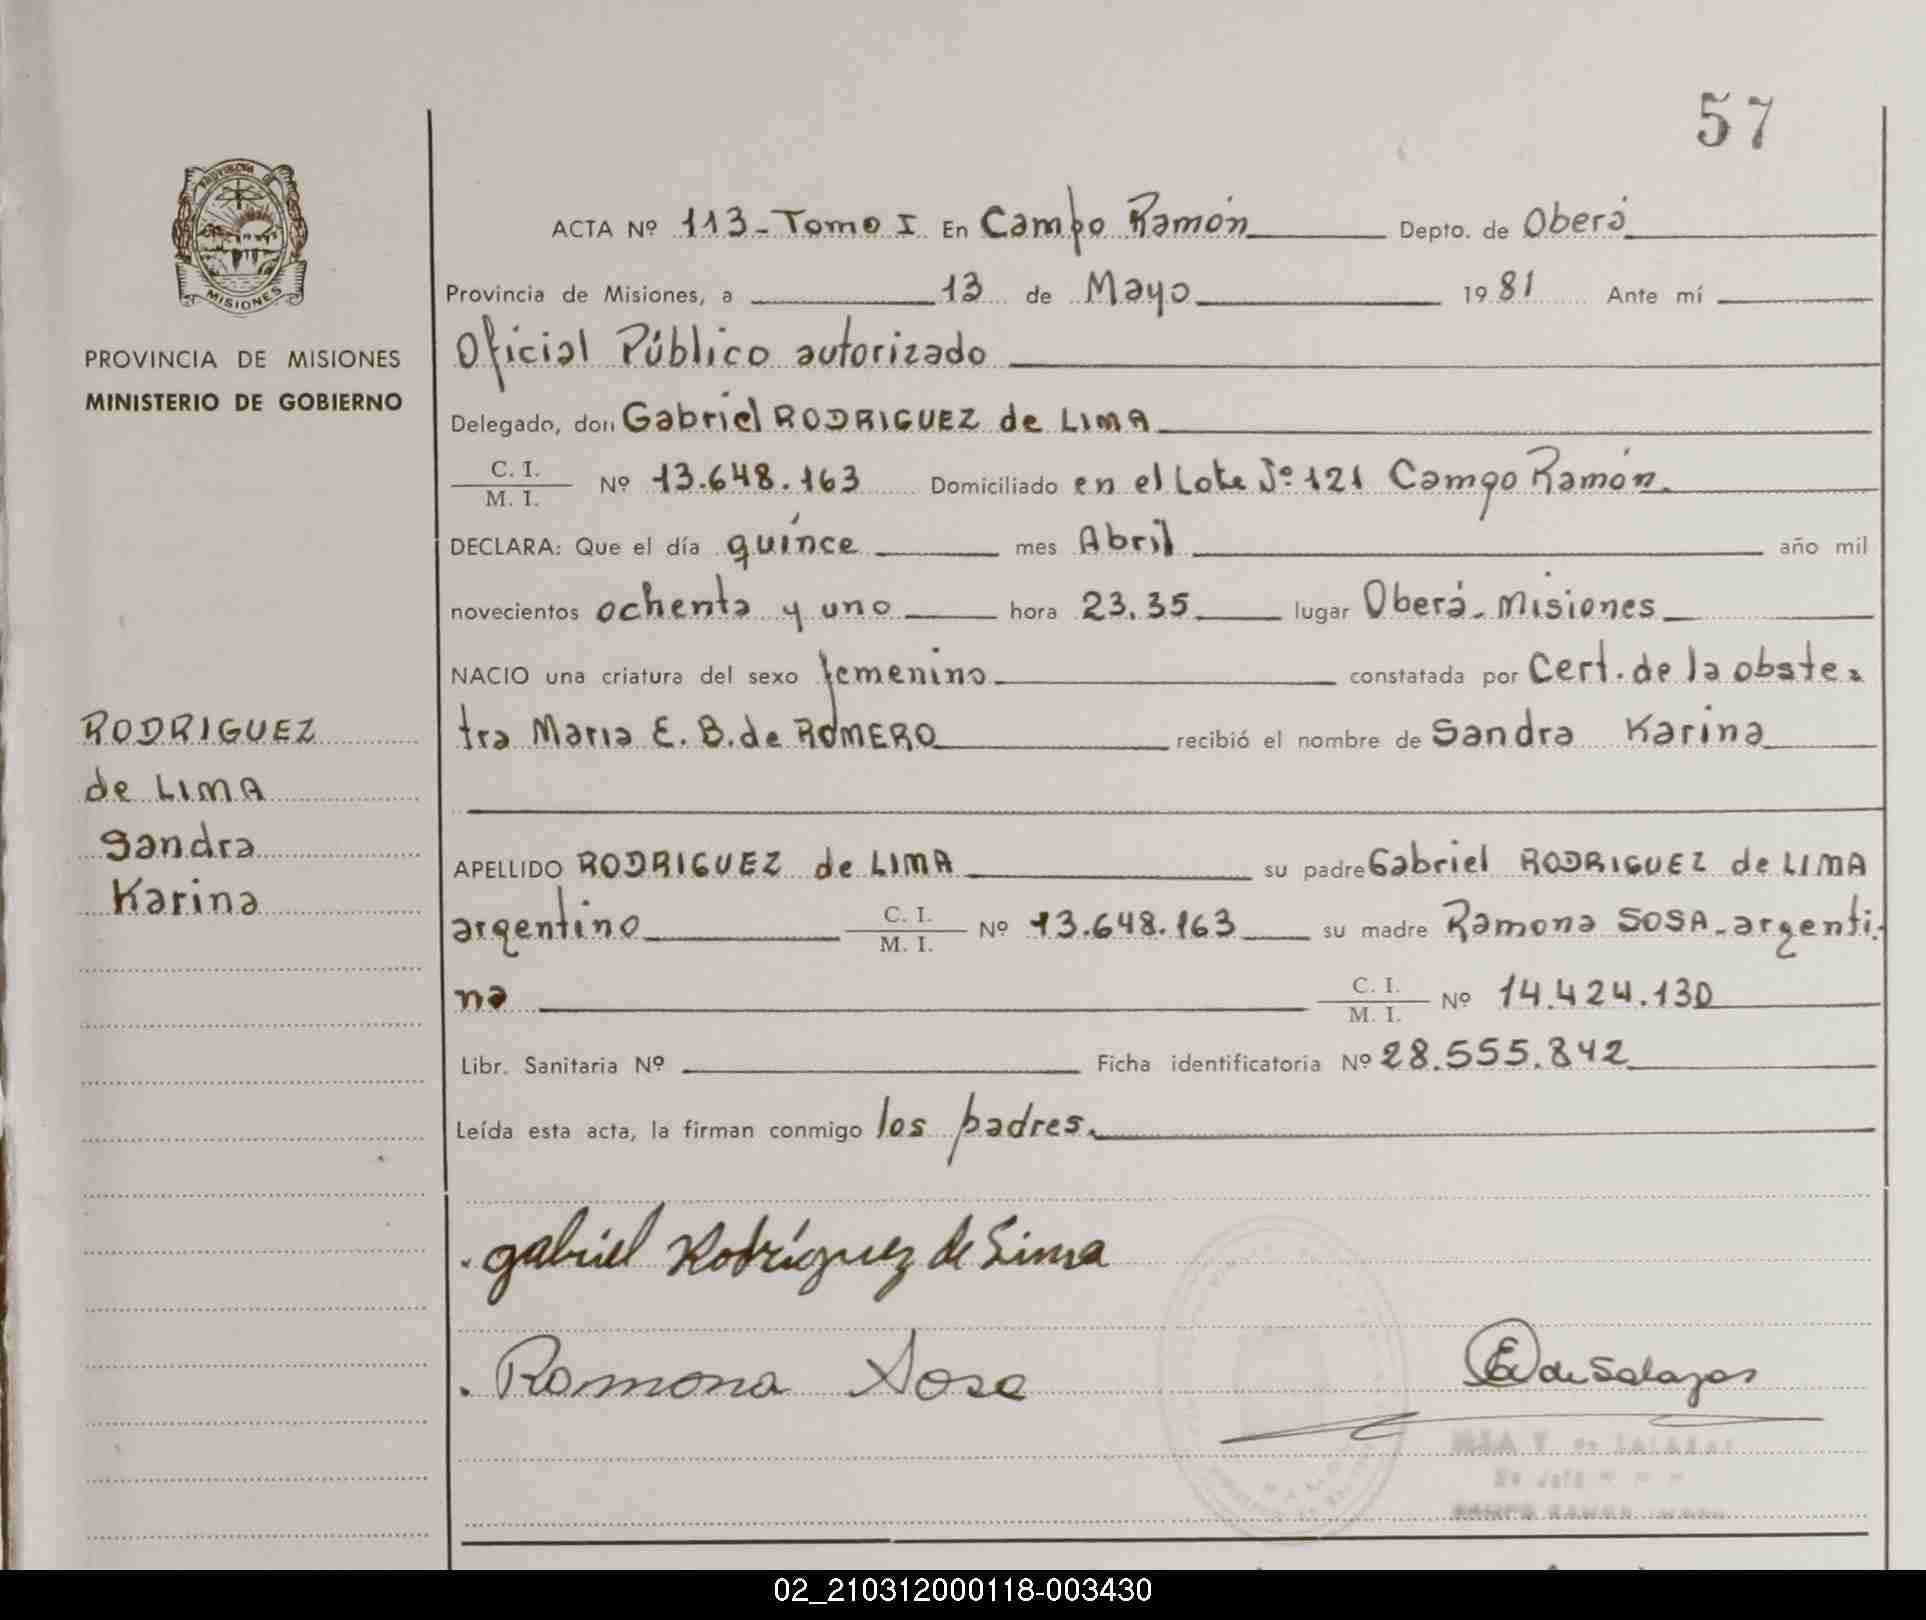 57
PROVINCIA DE MISIONES
MINISTERIO DE GOBIERNO
RODRIGUEZ
de LIMA
Sandra
Karina
ACTA Nº 113-Tomo I En Campo Ramón Depto. de Oberá
Provincia de Misiones, a 13 de Mayo 1981 Ante mí
Oficial Público autorizado
Delegado, don Gabriel RODRIGUEZ de LIMA
C. I.
M. I. Nº 13.648.163 Domiciliado en el Lote Nº 121 Campo Ramón.
DECLARA: Que el día quince mes Abril año mil
novecientos ochenta y uno hora 23.35 lugar Oberá-Misiones
NACIO una criatura del sexo femenino constatada por Cert. de la obste-
tra Maria E. B. de ROMERO recibió el nombre de Sandra Karina
APELLIDO RODRIGUEZ de LIMA su padre Gabriel RODRIGUEZ de LIMA
argentino C. I.
M. I. Nº 13.648.163 su madre Ramona SOSA-argenti-
na C. I.
M. I. Nº 14.424.130
Libr. Sanitaria Nº Ficha identificatoria Nº 28.555.842
Leída esta acta, la firman conmigo los padres.
gabriel Rodríguez de Lima
Ramona Sosa
de Salazar
02_210312000118-003430